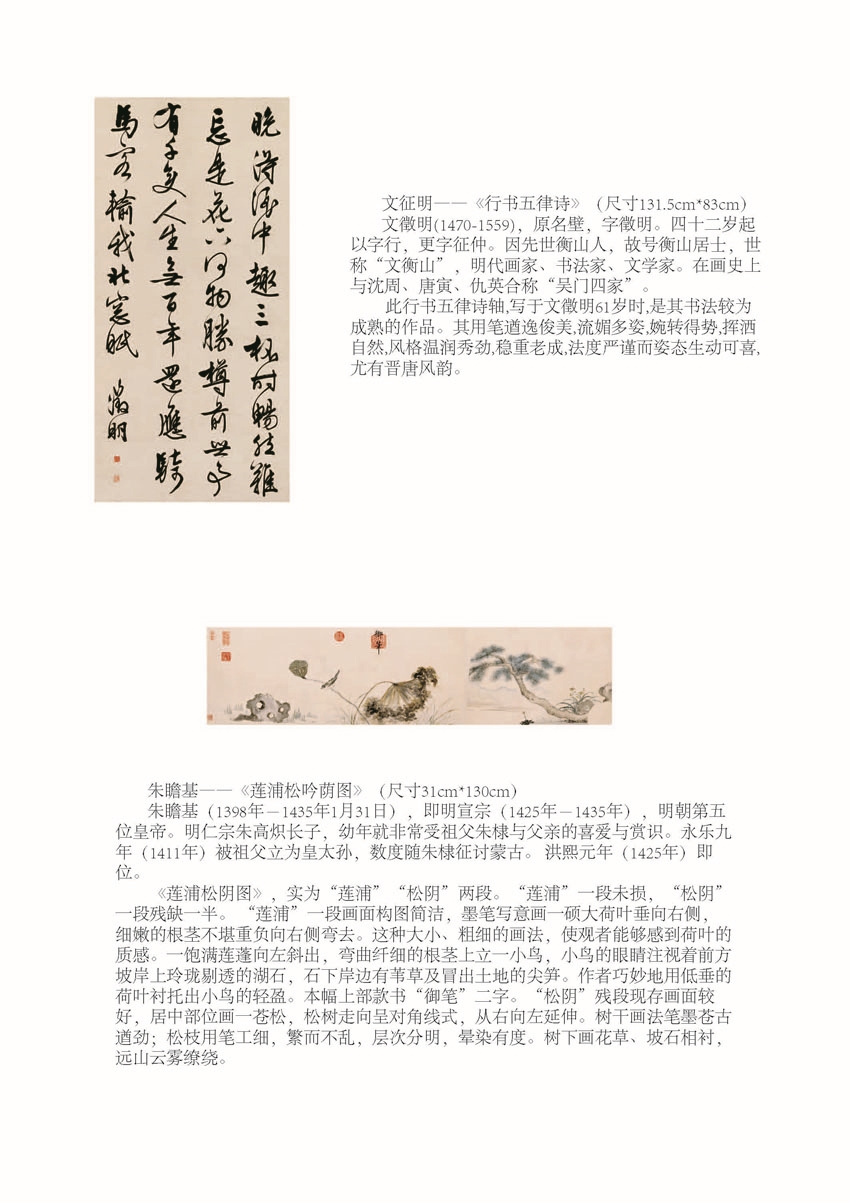 晚得酒中趣三杯时暢然難
忘是花下何物勝樽前世事
有千变人生無百年還應騎
馬客輸我北窓眠
徵明
文征明——《行书五律诗》（尺寸131.5cm*83cm）
文徵明(1470-1559)，原名壁，字徵明。四十二岁起
以字行，更字征仲。因先世衡山人，故号衡山居士，世
称“文衡山”，明代画家、书法家、文学家。在画史上
与沈周、唐寅、仇英合称“吴门四家”。
此行书五律诗轴,写于文徵明61岁时,是其书法较为
成熟的作品。其用笔遒逸俊美,流媚多姿,婉转得势,挥洒
自然,风格温润秀劲,稳重老成,法度严谨而姿态生动可喜,
尤有晋唐风韵。
御笔
朱瞻基——《莲浦松吟荫图》（尺寸31cm*130cm）
朱瞻基（1398年－1435年1月31日），即明宣宗（1425年－1435年），明朝第五
位皇帝。明仁宗朱高炽长子，幼年就非常受祖父朱棣与父亲的喜爱与赏识。永乐九
年（1411年）被祖父立为皇太孙，数度随朱棣征讨蒙古。 洪熙元年（1425年）即
位。
《莲浦松阴图》，实为“莲浦”“松阴”两段。“莲浦”一段未损，“松阴”
一段残缺一半。 “莲浦”一段画面构图简洁，墨笔写意画一硕大荷叶垂向右侧，
细嫩的根茎不堪重负向右侧弯去。这种大小、粗细的画法，使观者能够感到荷叶的
质感。一饱满莲蓬向左斜出，弯曲纤细的根茎上立一小鸟，小鸟的眼睛注视着前方
坡岸上玲珑剔透的湖石，石下岸边有苇草及冒出土地的尖笋。作者巧妙地用低垂的
荷叶衬托出小鸟的轻盈。本幅上部款书“御笔”二字。“松阴”残段现存画面较
好，居中部位画一苍松，松树走向呈对角线式，从右向左延伸。树干画法笔墨苍古
遒劲；松枝用笔工细，繁而不乱，层次分明，晕染有度。树下画花草、坡石相衬，
远山云雾缭绕。